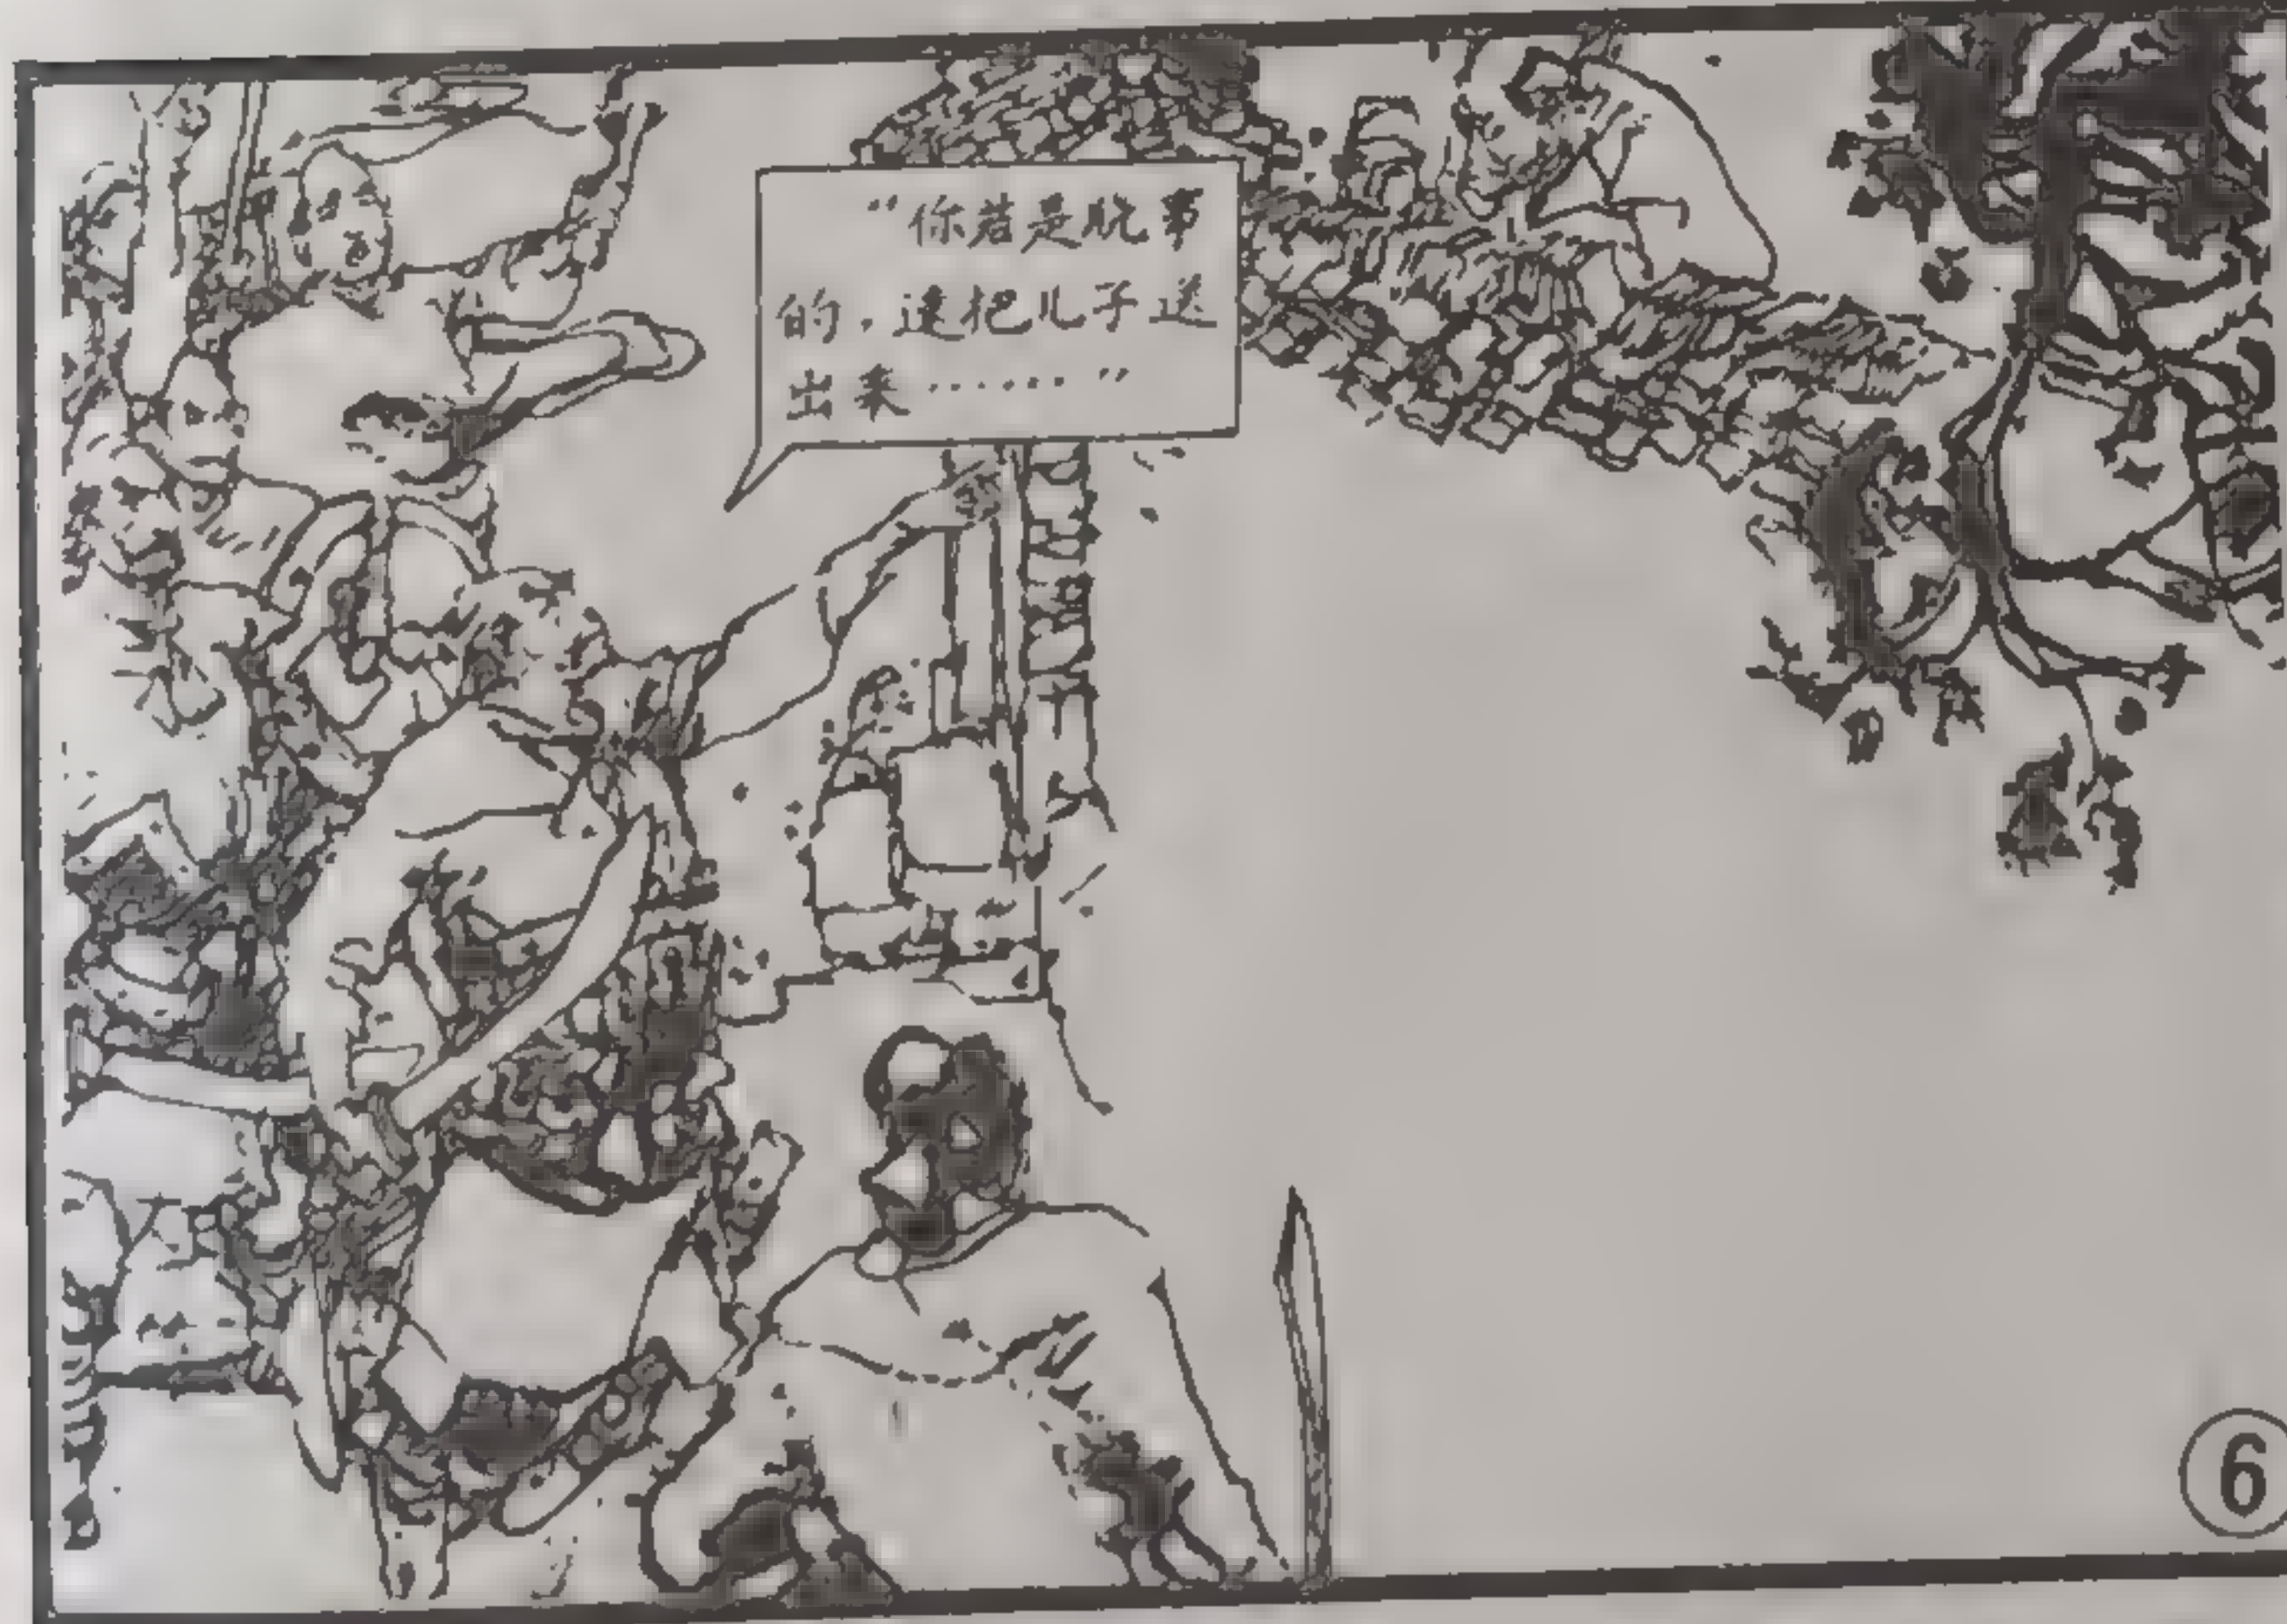 “你若是晓事
的，速把儿子送
出来……”
⑥